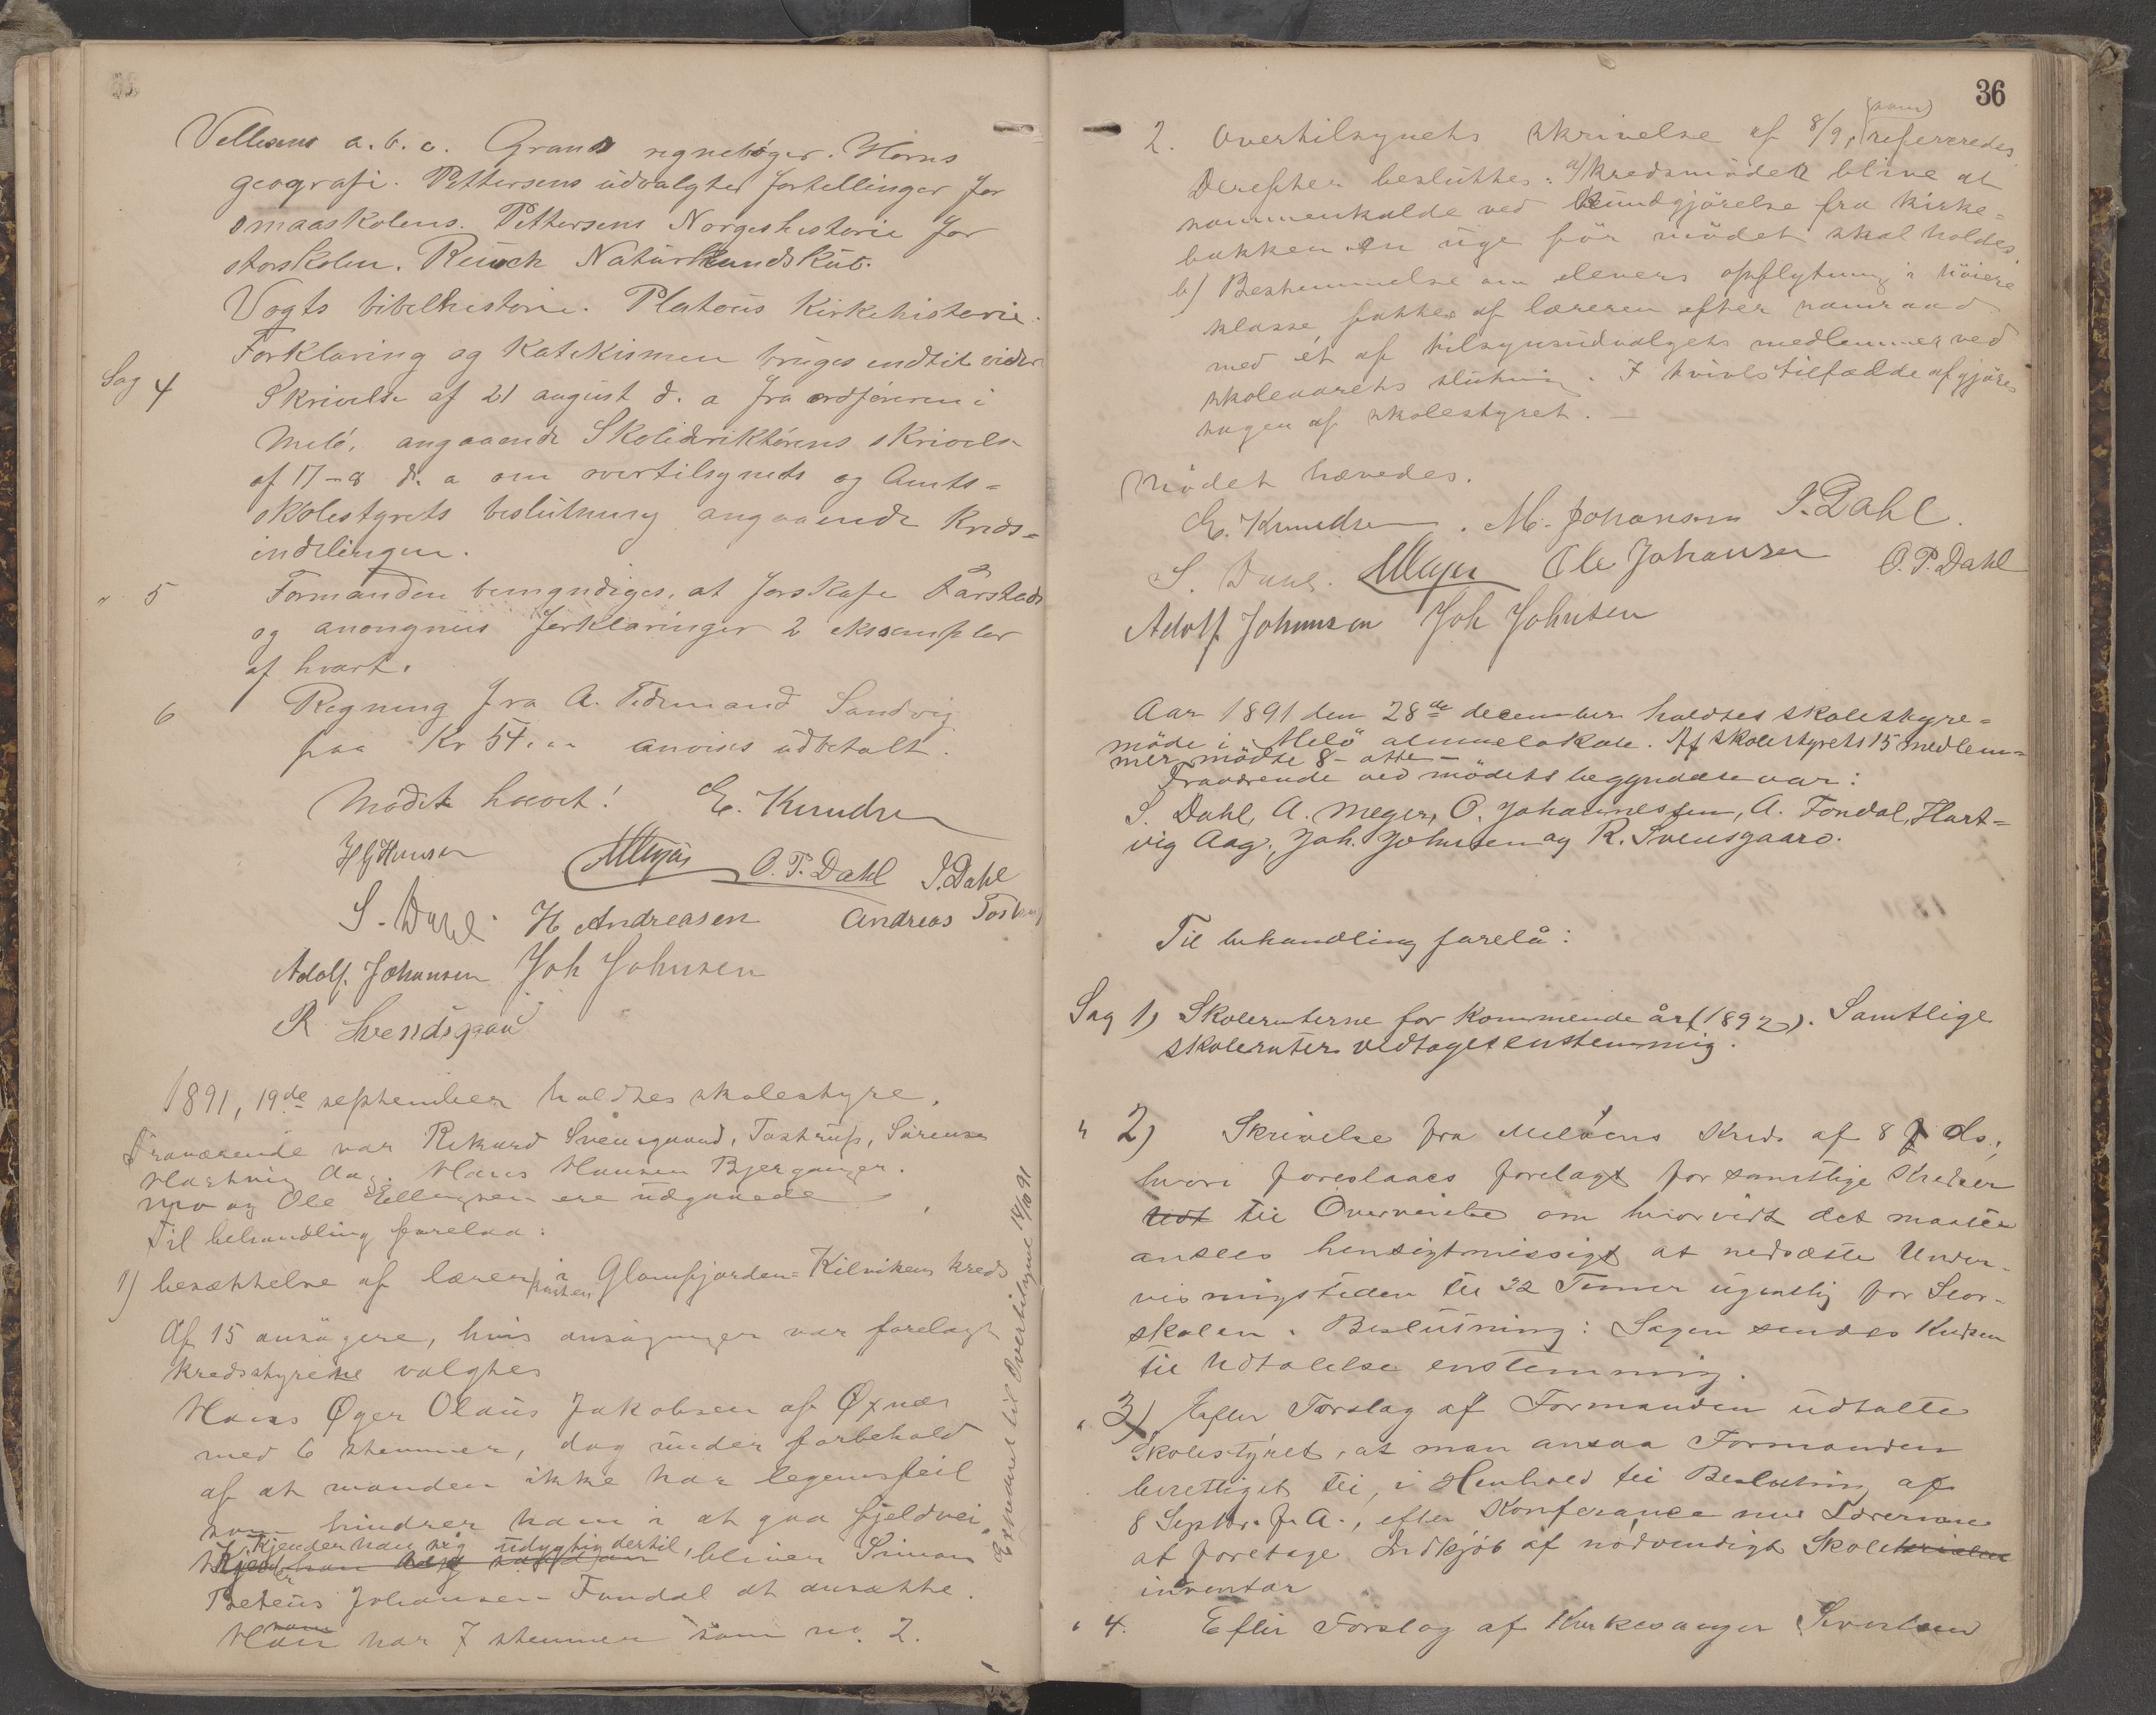 Vellesens a.b.c. Grans regnebøger. Horns
geografi. Pettersens udvalgte fortellinger for
smaaskolens. Pettersens Norgeshistorie for
storskolen. Reusch Naturkundskab.
Vogts bibelhistorie. Platous Kirkehistorie.
Forklaring og Katekismen bruges indtil videre
Sag 4 Skrivelse af 21 august d. a fra ordføreren i
Melø, angaaende Skoledirektørens skrivelse
af 17-8 d. a om overtilsynets og Amts-
skolestyrets beslutning angaaende Kreds-
indelingen.
" 5 Formanden bemyndiges, at forskafe Fårstads
og anonymus forklaringer 2 eksempler
af hvert.
6 Regning fra A. Tidemand Sandvig
paa Kr 54.00 anvises udbetalt.
Mødet hævet! E. Knudsen
H G Hansen AMeyer O. P. Dahl I. Dahl
S. Dahl. H Andreasen Andreas Tostrup
Adolf. Johansen Joh Johnsen
R Svendsgaard
1891, 19de september holdtes skolestyre.
Fraværende var Rikard Svensgaard, Tostrup, Sørensen
Hartvig Aag. Hans Hansen Bjerganger.
Mo og Ole Ellingsen ere udgaaede
Til behandling forelaa:
1) besættelse af lærerposten i Glomfjorden-Kilvikens kreds
Af 15 ansøgere, hvis ansøgninger var forelagt
kredsstyrene valgtes
Hans Øger Olaus Jakobsen af Øxnes
med 6 stemmer, dog under forbehold
af at manden ikke har legemsfeil
som hindrer ham i at gaa fjeldvei.
Kjender han sig udygtig dertil,
bliver Simon
Peteus Johansen-Fondal at ansætte.
Han har 7 stemmer som no. 2.
Expederet til Overtilsynet 14/10 91
36
2. Overtilsynets skrivelse af 8/9, (som) refereredes.
Derefter besluttes: a) Kredsmøder blive at
sammenkalde ved kundgjørelse fra kirke-
bakken en uge før mødet skal holdes
b) Bestemmelse om elevers opflytning i høiere
klasse fattes af læreren efter samraad
med et af tilsynsudvalgets medlemmer ved
skoleaarets slutning. I tvivlstilfælde afgjøres
sagen af skolestyret. —
Mødet hævedes.
E. Knudsen. M. Johansen I. Dahl.
S. Dahl. AMeyer Ole Johansen O. P. Dahl
Adolf Johansen Joh Johnsen
Aar 1891 den 28de december holdtes skolestyre-
møde i Melø almuelokale. Af skolestyrets 15 medlem-
mer mødte 8 - otte -
Fraværende ved mødets begyndelse var:
S. Dahl, A. Meyer, O. Johannessen, A. Fondal, Hart-
vig Aag, Joh. Johnsen og R. Svensgaard.
Til behandling forelå:
Sag 1) Skoleruterne for kommende år (1892). Samtlige
skoleruter vedtoges enstemmig.
" 2) Skrivelse fra Meløens Kreds af 8 ds.,
hvori foreslaaes forelagt for samtlige Kredser
til Overveielse om hvorvidt det maatte
ansees hensigtmæssigt at nedsætte Under-
visningstiden til 32 Timer ugentlig for Stor-
skolen. Beslutning: Sagen sendes Kredsen
til Udtalelse enstemmig.
" 3) Efter Forslag af Formanden udtalte
Skolestyret, at man ansaa Formanden
berettiget til, i Henhold til Beslutning af
8 Septbr. f. A., efter Konferance med Lærerne
at foretage Indkjøb af nødvendigt Skole
inventar
" 4. Efter Forslag af Kirkesanger Sivertsen